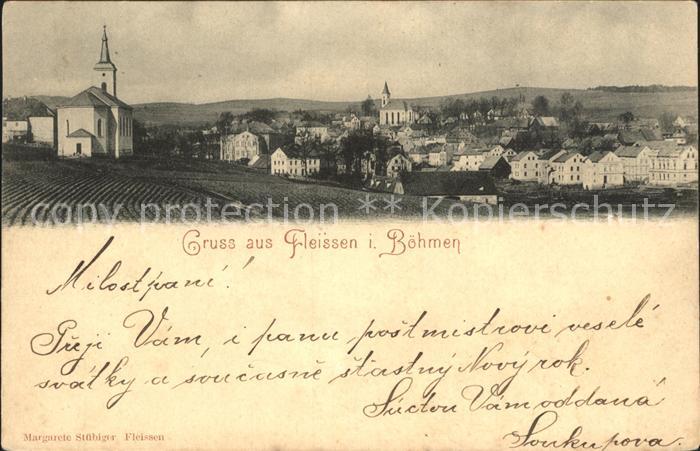 copy protection ** Kopierschutz
Gruss aus Fleissen i. Böhmen
Milostpaní!
Přeji Vám, i panu poštmistrovi veselé
svátky a současně šťastný Nový rok.
Súctou Vám oddaná
Soukupova.
Margarete Stübiger Fleissen